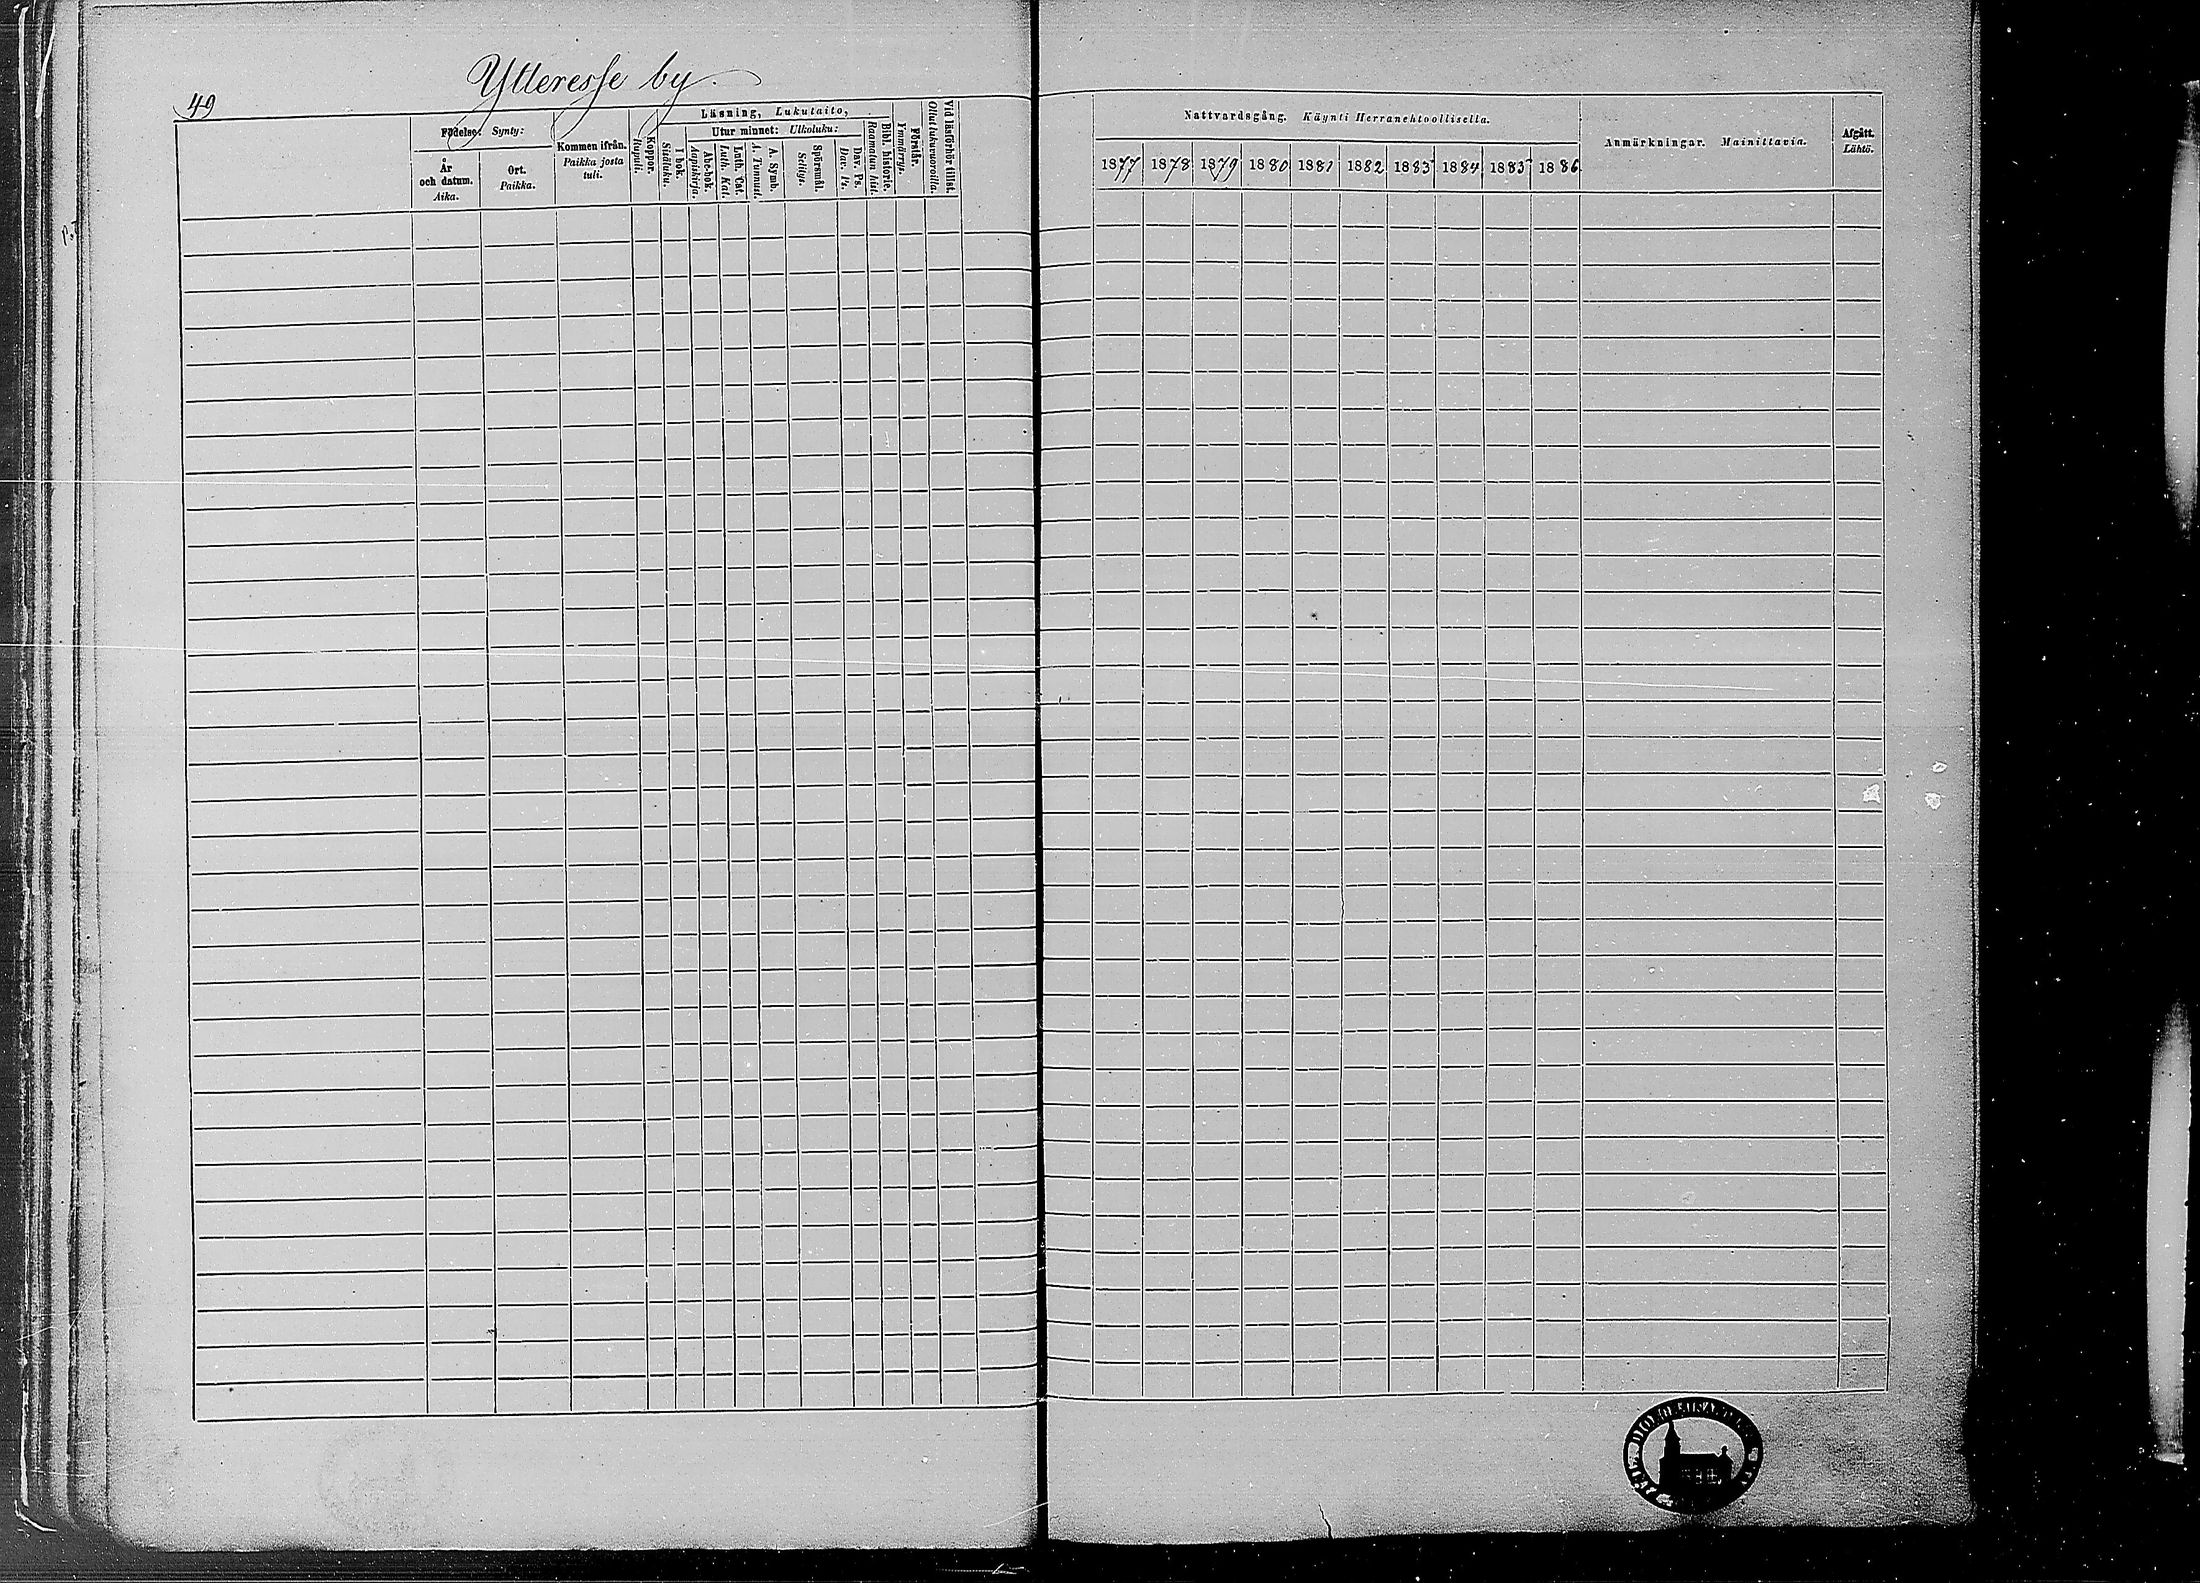 Ytteresse by.
49
Födelse: Synty:
År och datum. Aika.
Ort. Paikka.
Kommen ifrån. Paikka josta tuli.
Koppor. Rupuli.
Läsning, Lukutaito,
I bok. Sisäluku.
Utur minnet: Ulkoluku:
Abc-bok. Aapiskirja.
Luth. Cat. Luth. Kat.
A. Symb. A. Tunnust.
Spörsmål. Selitys.
Dav. Ps. Dav. Ps.
Bibl. historie. Raamatun hist.
Förstår. Ymmärrys.
Vid läsförhör tillst. Ollut lukuvuoroilla.
Nattvardsgång. Käynti Herranehtoollisella.
1877 1878 1879 1880 1881 1882 1883 1884 1885 1886
Anmärkningar. Mainittavia.
Afgått. Lähtö.